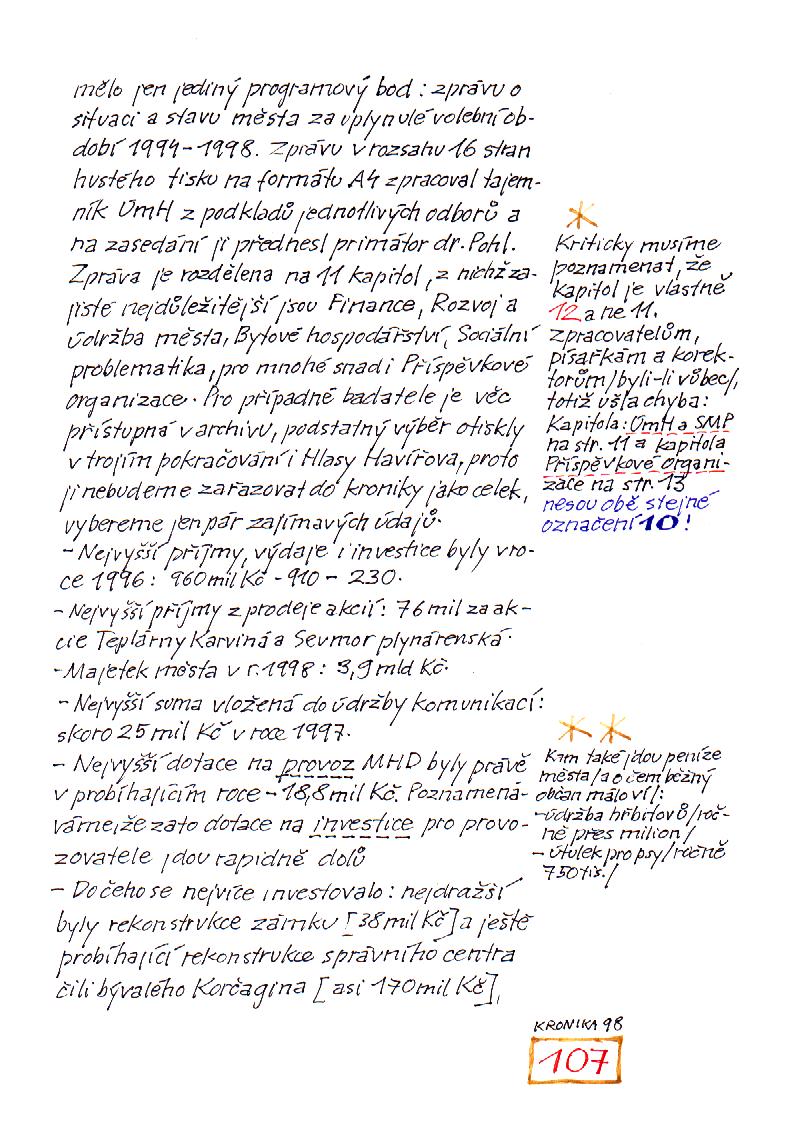 mělo jen jediný programový bod : zprávu o
situaci a stavu města za uplynulé volební ob-
dobí 1994-1998. Zprávu v rozsahu 16 stran
hustého tisku na formátu A4 zpracoval tajem-
ník ÚmH z podkladů jednotlivých odborů a
na zasedání ji přednesl primátor dr. Pohl.
Zpráva je rozdělena na 11 kapitol, z nichž za-
jisté nejdůležitější jsou Finance, Rozvoj a
údržba města, Bytové hospodářství, Sociální
problematika, pro mnohé snad i Příspěvkové
organizace. Pro případné badatele je věc
přístupná v archivu, podstatný výběr otiskly
v trojím pokračování i Hlasy Havířova, proto
ji nebudeme zařazovat do kroniky jako celek,
vybereme jen pár zajímavých údajů.
- Nejvyšší příjmy, výdaje i investice byly v ro-
ce 1996 : 960 mil Kč - 910 - 230.
- Nejvyšší příjmy z prodeje akcií : 76 mil za ak-
cie Teplárny Karviná a Sevmor plynárenská.
- Majetek města v r. 1998 : 3,9 mld Kč.
- Nejvyšší suma vložená do údržby komunikací :
skoro 25 mil Kč v roce 1997.
- Nejvyšší dotace na provoz MHD byly právě
v probíhajícím roce - 18,8 mil Kč. Poznamená-
váme, že zato dotace na investice pro provo-
zovatele jdou rapidně dolů
- Do čeho se nejvíce investovalo : nejdražší
byly rekonstrukce zámku [38 mil Kč] a ještě
probíhající rekonstrukce správního centra
čili bývalého Korčagina [asi 170 mil Kč],
*
Kriticky musíme
poznamenat, že
kapitol je vlastně
12 a ne 11.
zpracovatelům,
písařkám a korek-
torům /byli-li vůbec/,
totiž ušla chyba :
Kapitola : ÚmH a SMP
na str. 11 a kapitola
Příspěvkové organi-
zace na str. 13
nesou obě stejné
označení 10 !
* *
Kam také jdou peníze
města /a o čem běžný
občan málo ví/ :
- údržba hřbitovů /roč-
ně přes milion/
- útulek pro psy /ročně
750 tis./
KRONIKA 98
107